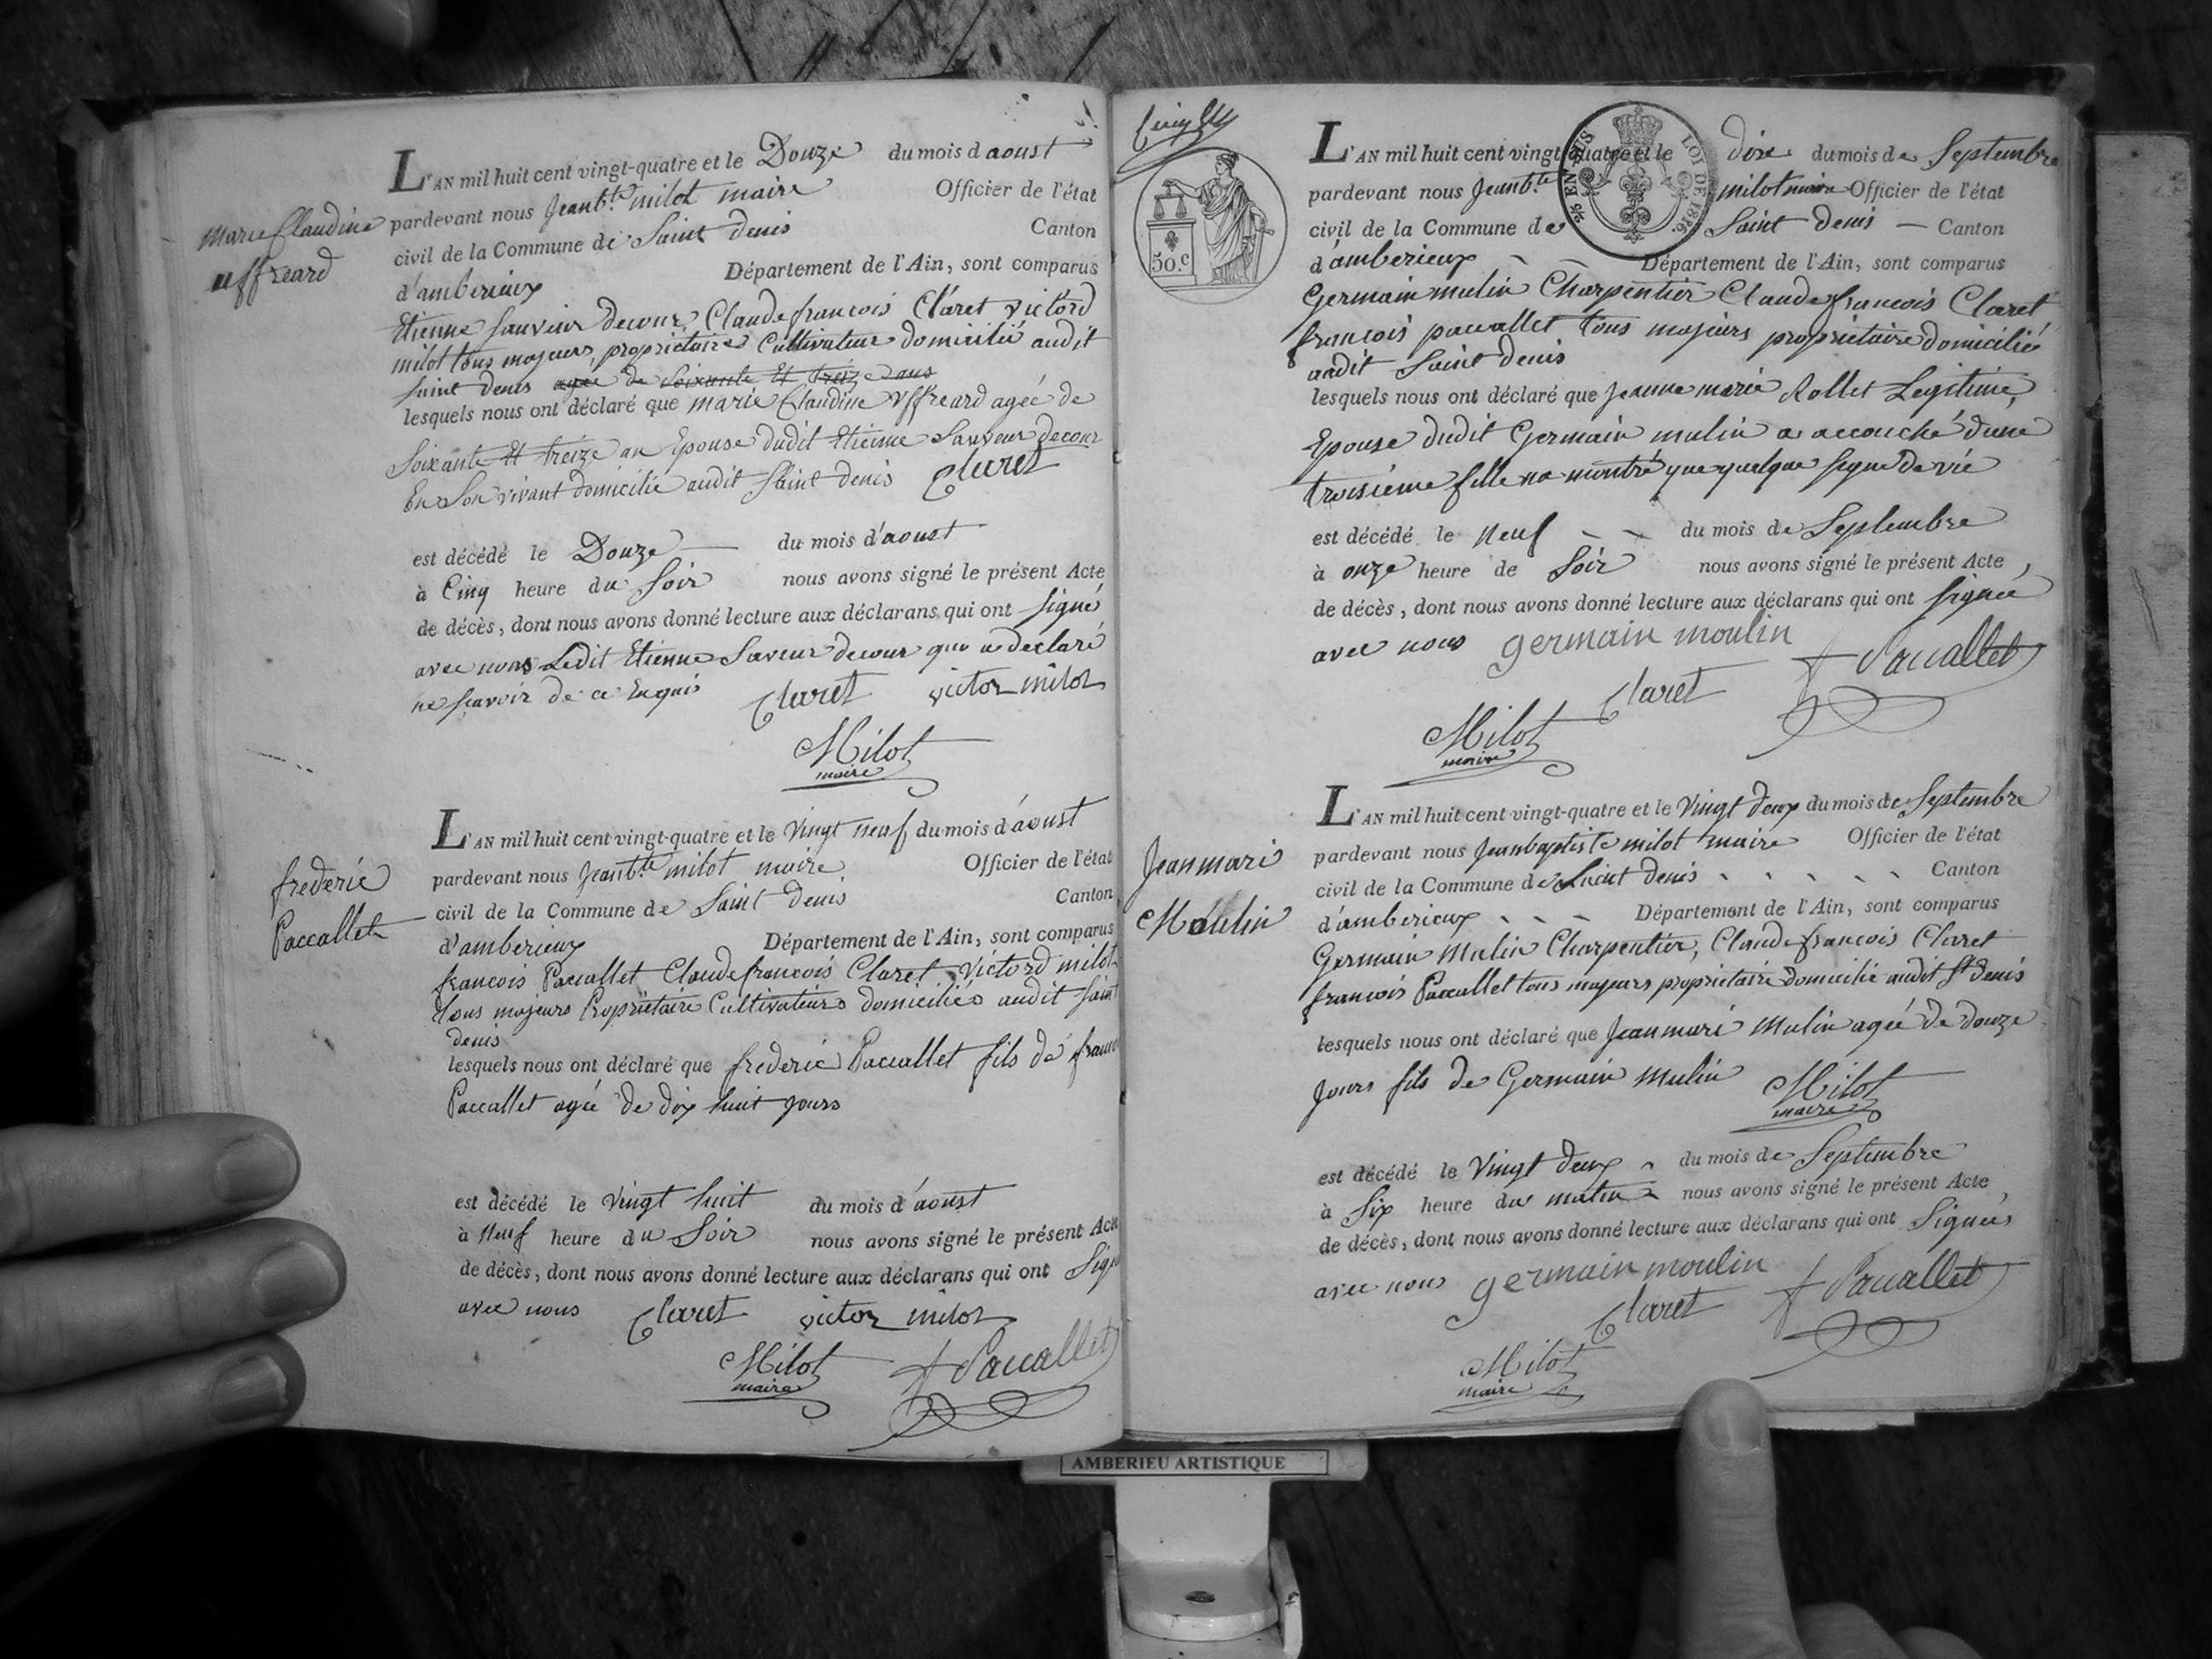 L'AN mil huit cent vingt-quatre et le Douze du mois d aoust
pardevant nous Jean bte milot maire Officier de l'état
civil de la Commune de Saint denis Canton
d'amberieux Département de l'Ain, sont comparus
Etienne Sauveur decour, Claude françois Claret victord
milot tous majeurs, propriétaires Cultivateur domicilié audit
Saint denis agée de Soixante Et treize ans
lesquels nous ont déclaré que marie Claudine uffreard agée de
Soixante Et treize an Epouse dudit Etienne Sauveur decour
En Son vivant domicilié audit Saint denis Claret
est décédé le Douze du mois d'aoust
à Cinq heure du Soir nous avons signé le présent Acte
de décès, dont nous avons donné lecture aux déclarans qui ont Signés
avec nous Ledit Etienne Saveur decour qui a declaré
ne scavoir de ce Enquis Claret victor milot
Milot
maire
marie Claudine
uffreard
L'AN mil huit cent vingt-quatre et le Vingt neuf du mois d'áoust
pardevant nous Jean bte milot maire Officier de l'état
civil de la Commune de Saint denis Canton
d'amberieux Département de l'Ain, sont comparus
françois Paccallet Claude françois Claret, Victord milot
tous majeurs Propriétaire Cultivateurs domiciliés audit Saint
denis
lesquels nous ont déclaré que frederic Paccallet fils de
Paccallet agée de dix huit jours
est décédé le Vingt huit du mois d'áoust
à Neuf heure du Soir nous avons signé le présent Acte
de décès, dont nous avons donné lecture aux déclarans qui ont
avec nous Claret victor milot
Milot f Paccallet
maire
frederic
Paccallet
L'AN mil huit cent vingt-quatre et le dixe du mois de Septembre
pardevant nous Jean bte milot maire Officier de l'état
civil de la Commune de Saint Denis Canton
d'amberieux Département de l'Ain, sont comparus
Germain mulin Charpentier Claude françois Claret
françois paccallet tous majeurs propriétaire domicilié
audit Saint denis
lesquels nous ont déclaré que Jeanne marie Rollet Legitime,
Epouse dudit Germain mulin a accouché d'une
troisième fille na montré que quelque signe de vie
est décédé le Neuf du mois de Septembre
à onze heure de Soir nous avons signé le présent Acte,
de décès, dont nous avons donné lecture aux déclarans qui ont Signée
avec nous germain moulin
Claret f Paccallet
Milot
maire
50.c
EN SUS
LOI DE 1816.
L'AN mil huit cent vingt-quatre et le Vingt deux du mois de Septembre
pardevant nous Jean baptiste milot maire Officier de l'état
civil de la Commune de Saint denis Canton
d'amberieux Département de l'Ain, sont comparus
Germain Mulin Charpentier, Claude françois Claret
françois Paccallet tous majeurs propriétaire domicilié audit St denis
lesquels nous ont déclaré que Jean mari Mulin agée de douze
Jours fils de Germain mulin Milot
maire
est décédé le Vingt deux du mois de Septembre
à Six heure du matin nous avons signé le présent Acte,
de décès, dont nous avons donné lecture aux déclarans qui ont Signées
avec nous germain moulin
Claret f Paccallet
Milot
maire
Jean mari
AMBERIEU ARTISTIQUE